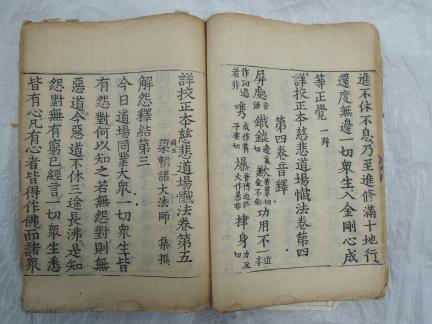 進不休不息乃至進修滿十地行
還度無邊一切衆生入金剛心成
等正覺 一拜
詳校正本慈悲道場懺法卷第四
第四卷音釋
屏處
鐵鏘
歉
功用不
作功過
者非
唯
爆
捍身
詳校正本慈悲道場懺法卷第五
梁朝諸大法師 集撰
解怨釋結第三
今日道場同業大衆一切衆生皆
有怨對何以知之若無怨對則無
惡道今惡道不休三途長沸是知
怨對無有窮已經言一切衆生悉
皆有心凡有心者皆得作佛而諸衆